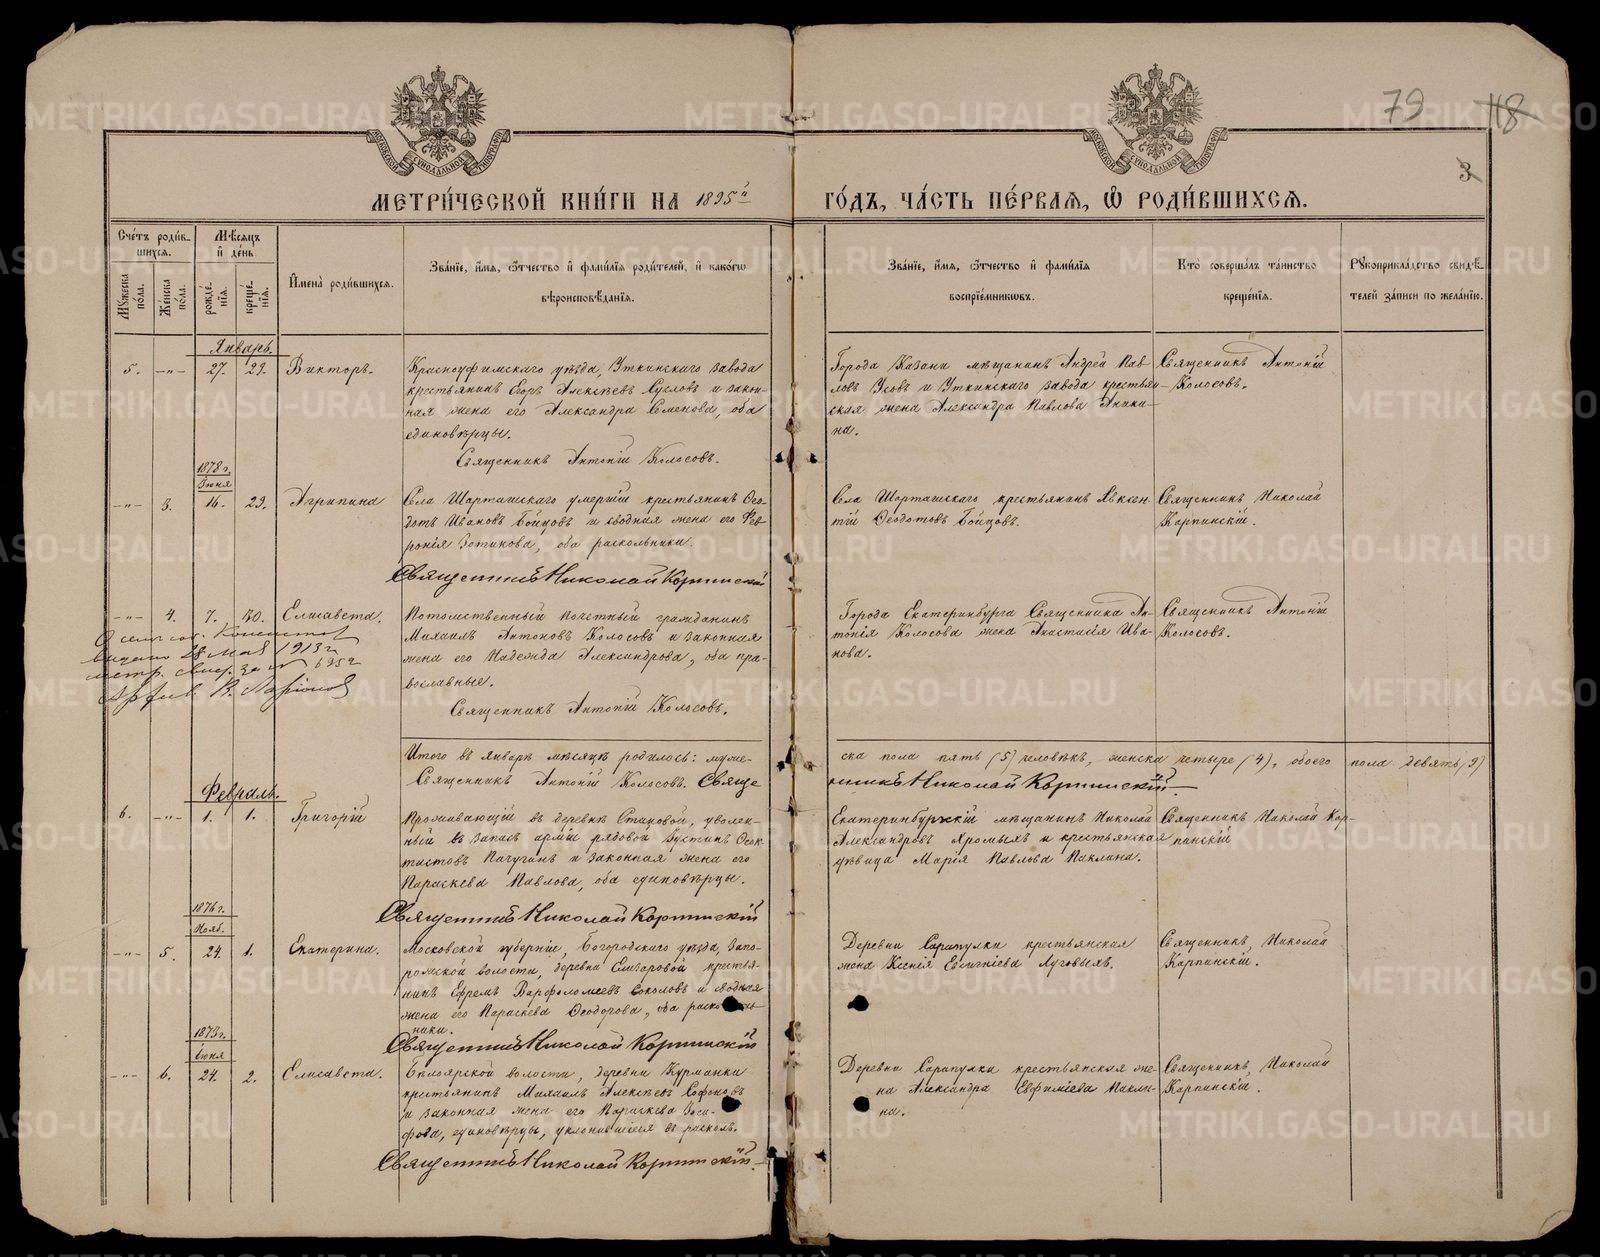 79 118
3
МЕТРИ́ЧЕСКОЙ КНИ́ГИ НА 1895й ГО́ДЪ, ЧА́СТЬ ПЕ́РВАѦ, Ѡ РОДИ́ВШИХСѦ.
Сче́тъ роди́вшихсѧ.
Мꙋ́жеска по́ла.
Же́нска по́ла.
Мѣ́сѧцъ и҆ де́нь
рожде́нїѧ.
креще́нїѧ.
И҆мена̀ роди́вшихсѧ.
Зва́нїе, и҆́мѧ, ѻ҆́тчество и҆ фами́лїѧ роди́телей, и҆ како́гѡ
вѣроисповѣ́данїѧ.
Зва́нїе, и҆́мѧ, ѻ҆́тчество и҆ фами́лїѧ
воспрїе́мникѡвъ.
Кто̀ соверша́лъ та́инство
креще́нїѧ.
Рꙋкоприкла́дство свидѣ́телей за́писи по жела́нїю.
Январь.
5. -"- 27. 29. Викторъ.
Красноуфимскаго уѣзда, Уткинскаго завода
крестьянинъ Егоръ Алексѣевъ Сусловъ и закон-
ная жена его Александра Семенова, оба
единовѣрцы.
Священникъ Антонiй Колосовъ.
Города Казани мѣщанинъ Андрей Пав-
ловъ Усовъ и Уткинскаго завода крестьян-
ская жена Александра Павлова Аники-
на.
Священникъ Антонiй
Колосовъ.
1878 г.
Iюня
-"- 3. 16. 29. Агрипина
Села Шарташскаго умершiй крестьянинъ Ѳео-
дотъ Ивановъ Бойцовъ и сводная жена его Фев-
ронiя Зотикова, оба раскольники.
Священникъ Николай Карпинскiй
Села Шарташскаго крестьянинъ Авксен-
тiй Ѳеодотовъ Бойцовъ.
Священникъ Николай
Карпинскiй.
-"- 4. 7. 30. Елисавета.
Потомственный почетный гражданинъ
Михаилъ Антоновъ Колосовъ и законная
жена его Надежда Александрова, оба пра-
вославные.
Священникъ Антонiй Колосовъ.
Города Екатеринбурга Священника Ан-
тонiя Колосова жена Анастасiя Ива-
нова.
Священникъ Антонiй
Колосовъ.
видено 28 мая 1913 г
метр. свид. за № 695
Итого въ январѣ мѣсяцѣ родилось: муже-
ска пола пять (5) человѣкъ, женска четыре (4), обоего пола девять (9)
Священникъ Антонiй Колосовъ. Свяще
нникъ Николай Карпинскiй.
Февраль.
6. -"- 1. 1. Григорiй
Проживающiй въ деревнѣ Становой, уволен-
ный въ запасъ армiи рядовой Густинъ Ѳеок-
тистовъ Пагуганъ и законная жена его
Параскева Павлова, оба единовѣрцы.
Священникъ Николай Карпинскiй
Екатеринбуржскiй мѣщанинъ Николай
Александровъ Хромыхъ и крестьянская
дѣвица Марiя Павлова Паклина.
Священникъ Николай Кар-
пинскiй
1876 г.
Нояб.
-"- 5. 24. 1. Екатерина.
Московской губернiи, Богородскаго уѣзда, Запо-
рожской волости, деревни Елизаровой крестья-
нинъ Ефремъ Варфоломеевъ Соколовъ и сводная
жена его Параскева Ѳеодорова, оба расколь-
ники.
Священникъ Николай Карпинскiй
Деревни Сарапулки крестьянская
жена Ксенiя Евгинiева Луговыхъ.
Священникъ Николай
Карпинскiй.
1873 г.
Iюня
-"- 6. 24. 2. Елисавета.
Белоярской волости, деревни Курманки
крестьянинъ Михаилъ Алексѣевъ Софоновъ
и законная жена его Параскева Iоси-
фова, единовѣрцы, уклонившiеся въ расколъ.
Священникъ Николай Карпинскiй.
Деревни Сарапулки крестьянская же-
на Александра Евфимiева Пакли-
на.
Священникъ Николай
Карпинскiй.